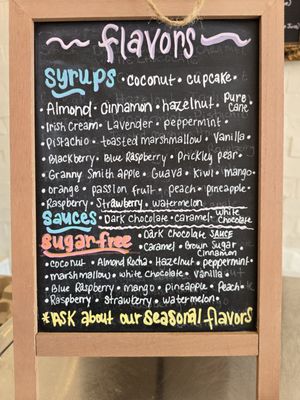 ~ flavors ~
syrups • coconut • cupcake •
• Almond • Cinnamon • hazelnut • pure cane
• Irish Cream • Lavender • peppermint •
• Pistachio • toasted marshmallow • Vanilla •
• Blackberry • Blue Raspberry • Prickly pear •
• Granny Smith apple • Guava • Kiwi • mango •
• orange • passion fruit • peach • pineapple •
Raspberry • Strawberry • watermelon
sauces • Dark Chocolate • Caramel • white chocolate
sugar free • Dark Chocolate SAUCE
• Caramel • Brown Sugar Cinnamon
• coconut • Almond Rocha • Hazelnut • peppermint •
• marshmallow • white chocolate • vanilla •
• Blue Raspberry • mango • pineapple • Peach •
• Raspberry • strawberry • watermelon •
*ASK about our seasonal flavors